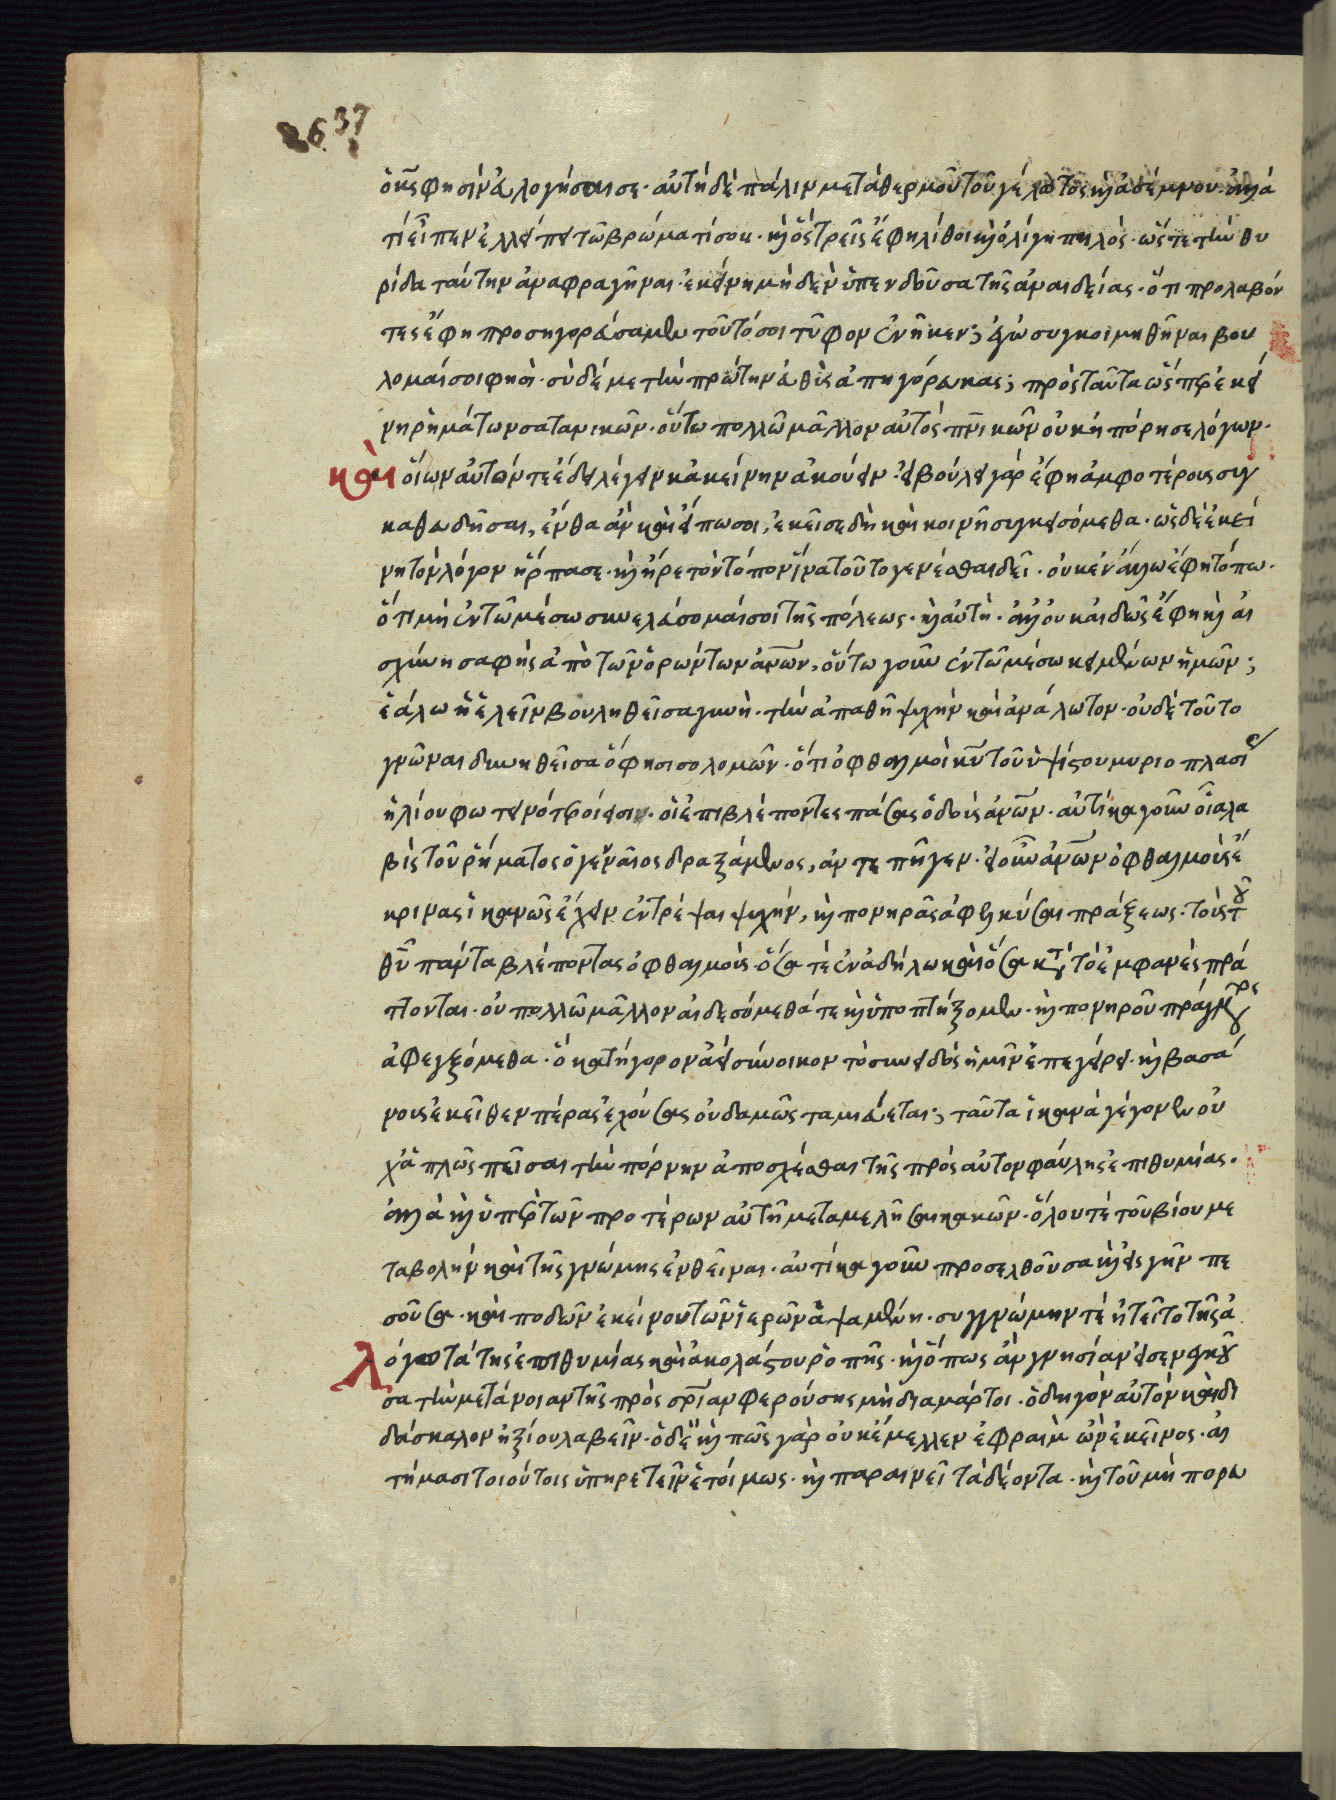 37
ὁ κ̅ς φησὶν εὐλογήσαι σε· αὐτὴ δὲ πάλιν μετὰ θερμοῦ τοῦ γέλωτος καὶ ἀσέμνου· ἀλλὰ
τί εἶπεν ἐλλείπει τῶ βρώματί σου· καὶ ὃς τρεῖς ἔφη λίθοι καὶ ὀλίγη πηλὸς· ὥστε τὴν θυ
ρίδα ταύτην ἀναφραγῆναι· ἐκείνη μηδὲν ὑπενδοῦσα τῆς ἀναιδείας· ὅτι προλαβόν
τες ἔφη προσηγορεύσαμεν τοῦτό σοι τῦφον ἐνῆκεν; ἐγὼ συγκοιμηθῆναι βού
λομαί σοι φησὶ· σὺ δέ με τὴν πρώτην εὐθὺς ἀπηγόρευκας; πρὸς ταῦτα ὥσπερ ἐκεί
νη ῥημάτων σατανικῶν· οὕτω πολλῶ μᾶλλον αὐτὸς πν̅ικῶν οὐκ ἠπόρησε λόγων·
καὶ οἵων αὐτόν τε ἔδει λέγειν κἀκείνην ἀκούειν· εἰ βούλει γάρ ἔφη ἀμφοτέρους συγ
καθευδῆσαι, ἔνθα ἂν καὶ εἴπω σοι, ἐκεῖσε δὴ καὶ κοινῆ συγκεισόμεθα· ὡς δὲ ἐκεί
νη τὸν λόγον ἥρπασε· καὶ ἤρετο τὸν τόπον ἵνα τοῦτο γενέσθαι δεῖ· οὐκ ἐν ἄλλω ἔφη τόπω·
ὅτι μὴ ἐν τῶ μέσω συνελεύσομαί σοι τῆς πόλεως· καὶ αὐτὴ· ἀλλ' οὐκ αἰδὼς ἔφη καὶ αἰ
σχύνη σαφὴς ἀπὸ τῶν ὁρώντων ἀν̅ων, οὕτω γοῦν ἐν τῶ μέσω κειμένων ἡμῶν;
ἑάλω ἡ ἑλεῖν βουληθεῖσα γυνὴ· τὴν ἀπαθῆ ψυχὴν καὶ ἀνάλωτον· οὐδὲ τοῦτο
γνῶναι δυνηθεῖσα ὅ φησι σολομῶν· ὅτι ὀφθαλμοὶ κ̅υ τοῦ ὑψίστου μυριοπλασί
ἡλίου φωτεινότεροί εἰσιν· οἱ ἐπιβλέποντες πάσας ὁδοὺς ἀν̅ων· αὐτίκα γοῦν οἷα λα
βὶς τοῦ ῥήματος ὁ γενναῖος δραξάμενος, ἀντεπῆγεν· εἰ οὖν ἀν̅ων ὀφθαλμοὺς ἔ
κρινας ἱκανῶς ἔχειν ἐντρέψαι ψυχὴν, καὶ πονηρᾶς ἀφελκύσαι πράξεως· τοὺς τοῦ
θ̅υ πάντα βλέποντας ὀφθαλμοὺς· ὅσα τὲ ἐν ἀδήλω καὶ ὅσα κατὰ τὸ ἐμφανὲς πρά
ττονται· οὐ πολλῶ μᾶλλον αἰδεσόμεθά τε καὶ ὑποπτήξομεν· καὶ πονηροῦ πράγματος
ἀφεξόμεθα· ὃ κατήγορον ἀεὶ σύνοικον τὸ συνειδὸς ἡμῖν ἐπεγείρει· καὶ βασά
νους ἐκεῖθεν πέρας ἐχούσας οὐδαμῶς ταμιεύεται; ταῦτα ἱκανὰ γέγονεν οὐ
χ' ἁπλῶς πεῖσαι τὴν πόρνην ἀποσχέσθαι τῆς πρὸς αὐτον φαύλης ἐπιθυμίας·
ἀλλὰ καὶ ὑπὲρ τῶν προτέρων αὐτῆ μεταμελῆσαι κακῶν· ὅλου τὲ τοῦ βίου με
ταβολὴν καὶ τῆς γνώμης ἐνθεῖναι· αὐτίκα γοῦν προσελθοῦσα καὶ εἰς γῆν πε
σοῦσα· καὶ ποδῶν ἐκείνου τῶν ἱερῶν ἁψαμένη· συγγνώμην τὲ ἠτεῖτο τῆς ἀ
λογωτάτης ἐπιθυμίας καὶ ἀκολάστου ῥοπῆς· καὶ ὅπως ἂν γνησίαν εἰσενεγκοῦ
σα τὴν μετάνοιαν τῆς πρὸς σ̅ριαν φερούσης μὴ διαμάρτοι· ὁδηγὸν αὐτὸν καὶ δι
δάσκαλον ἠξίου λαβεῖν· ὁ δὲ καὶ πῶς γὰρ οὐκ ἔμελλεν ἐφραὶμ ὢν ἐκεῖνος· αἰ
τήμασι τοιούτοις ὑπηρετεῖν ἑτοίμως· καὶ παραινεῖ τὰ δέοντα· καὶ τοῦ μὴ πόρω